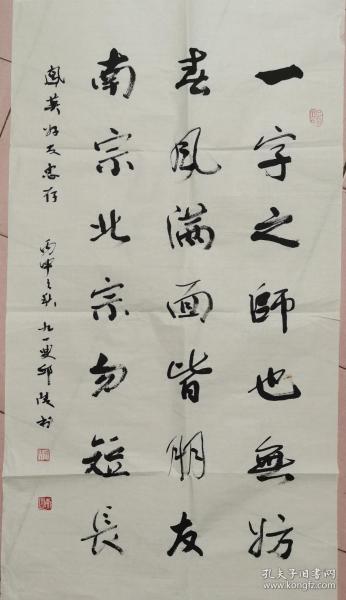 一字之師也無妨
春風滿面皆朋友
南宗北宗勿短長
鳳英好友惠存
丙申之秋 九一叟邱陵书
孔夫子旧书网